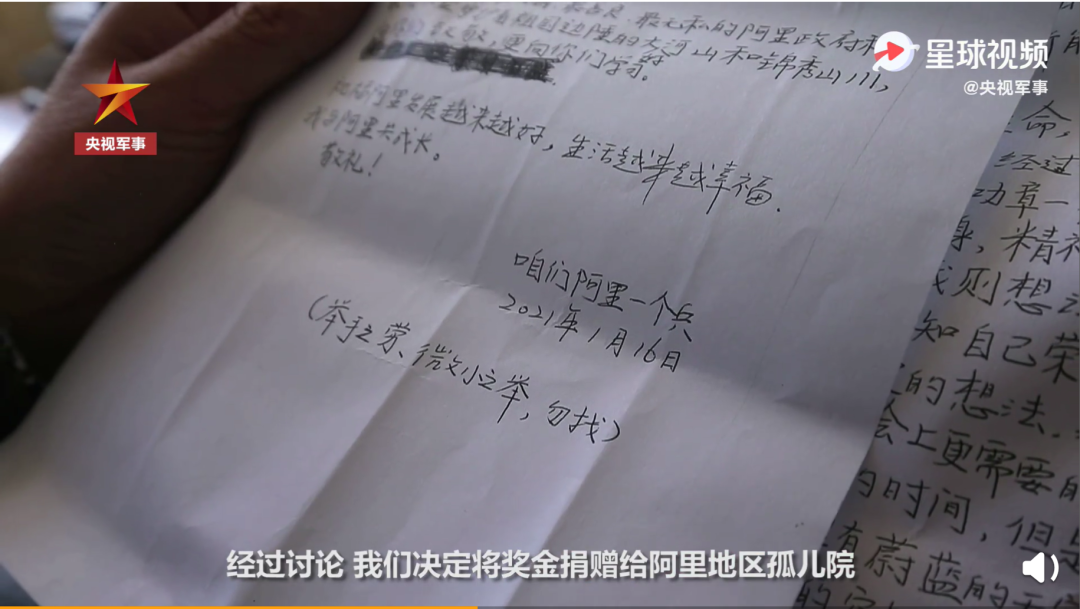 星球视频
@央视军事
央视军事
最无私的阿里政府和
祖国边陲的大河山和锦秀山川,
致敬,更向你们学习。
祝愿阿里发展越来越好,生活越来越幸福.
我与阿里共成长。
敬礼!
咱们阿里一个兵
2021年1月16日
(举手之荣、微小之举,勿找)
命,
经过
功章一
精神
则想
知自己荣
的想法.
会上更需要的
的时间,但是
有蔚蓝的天
经过讨论 我们决定将奖金捐赠给阿里地区孤儿院